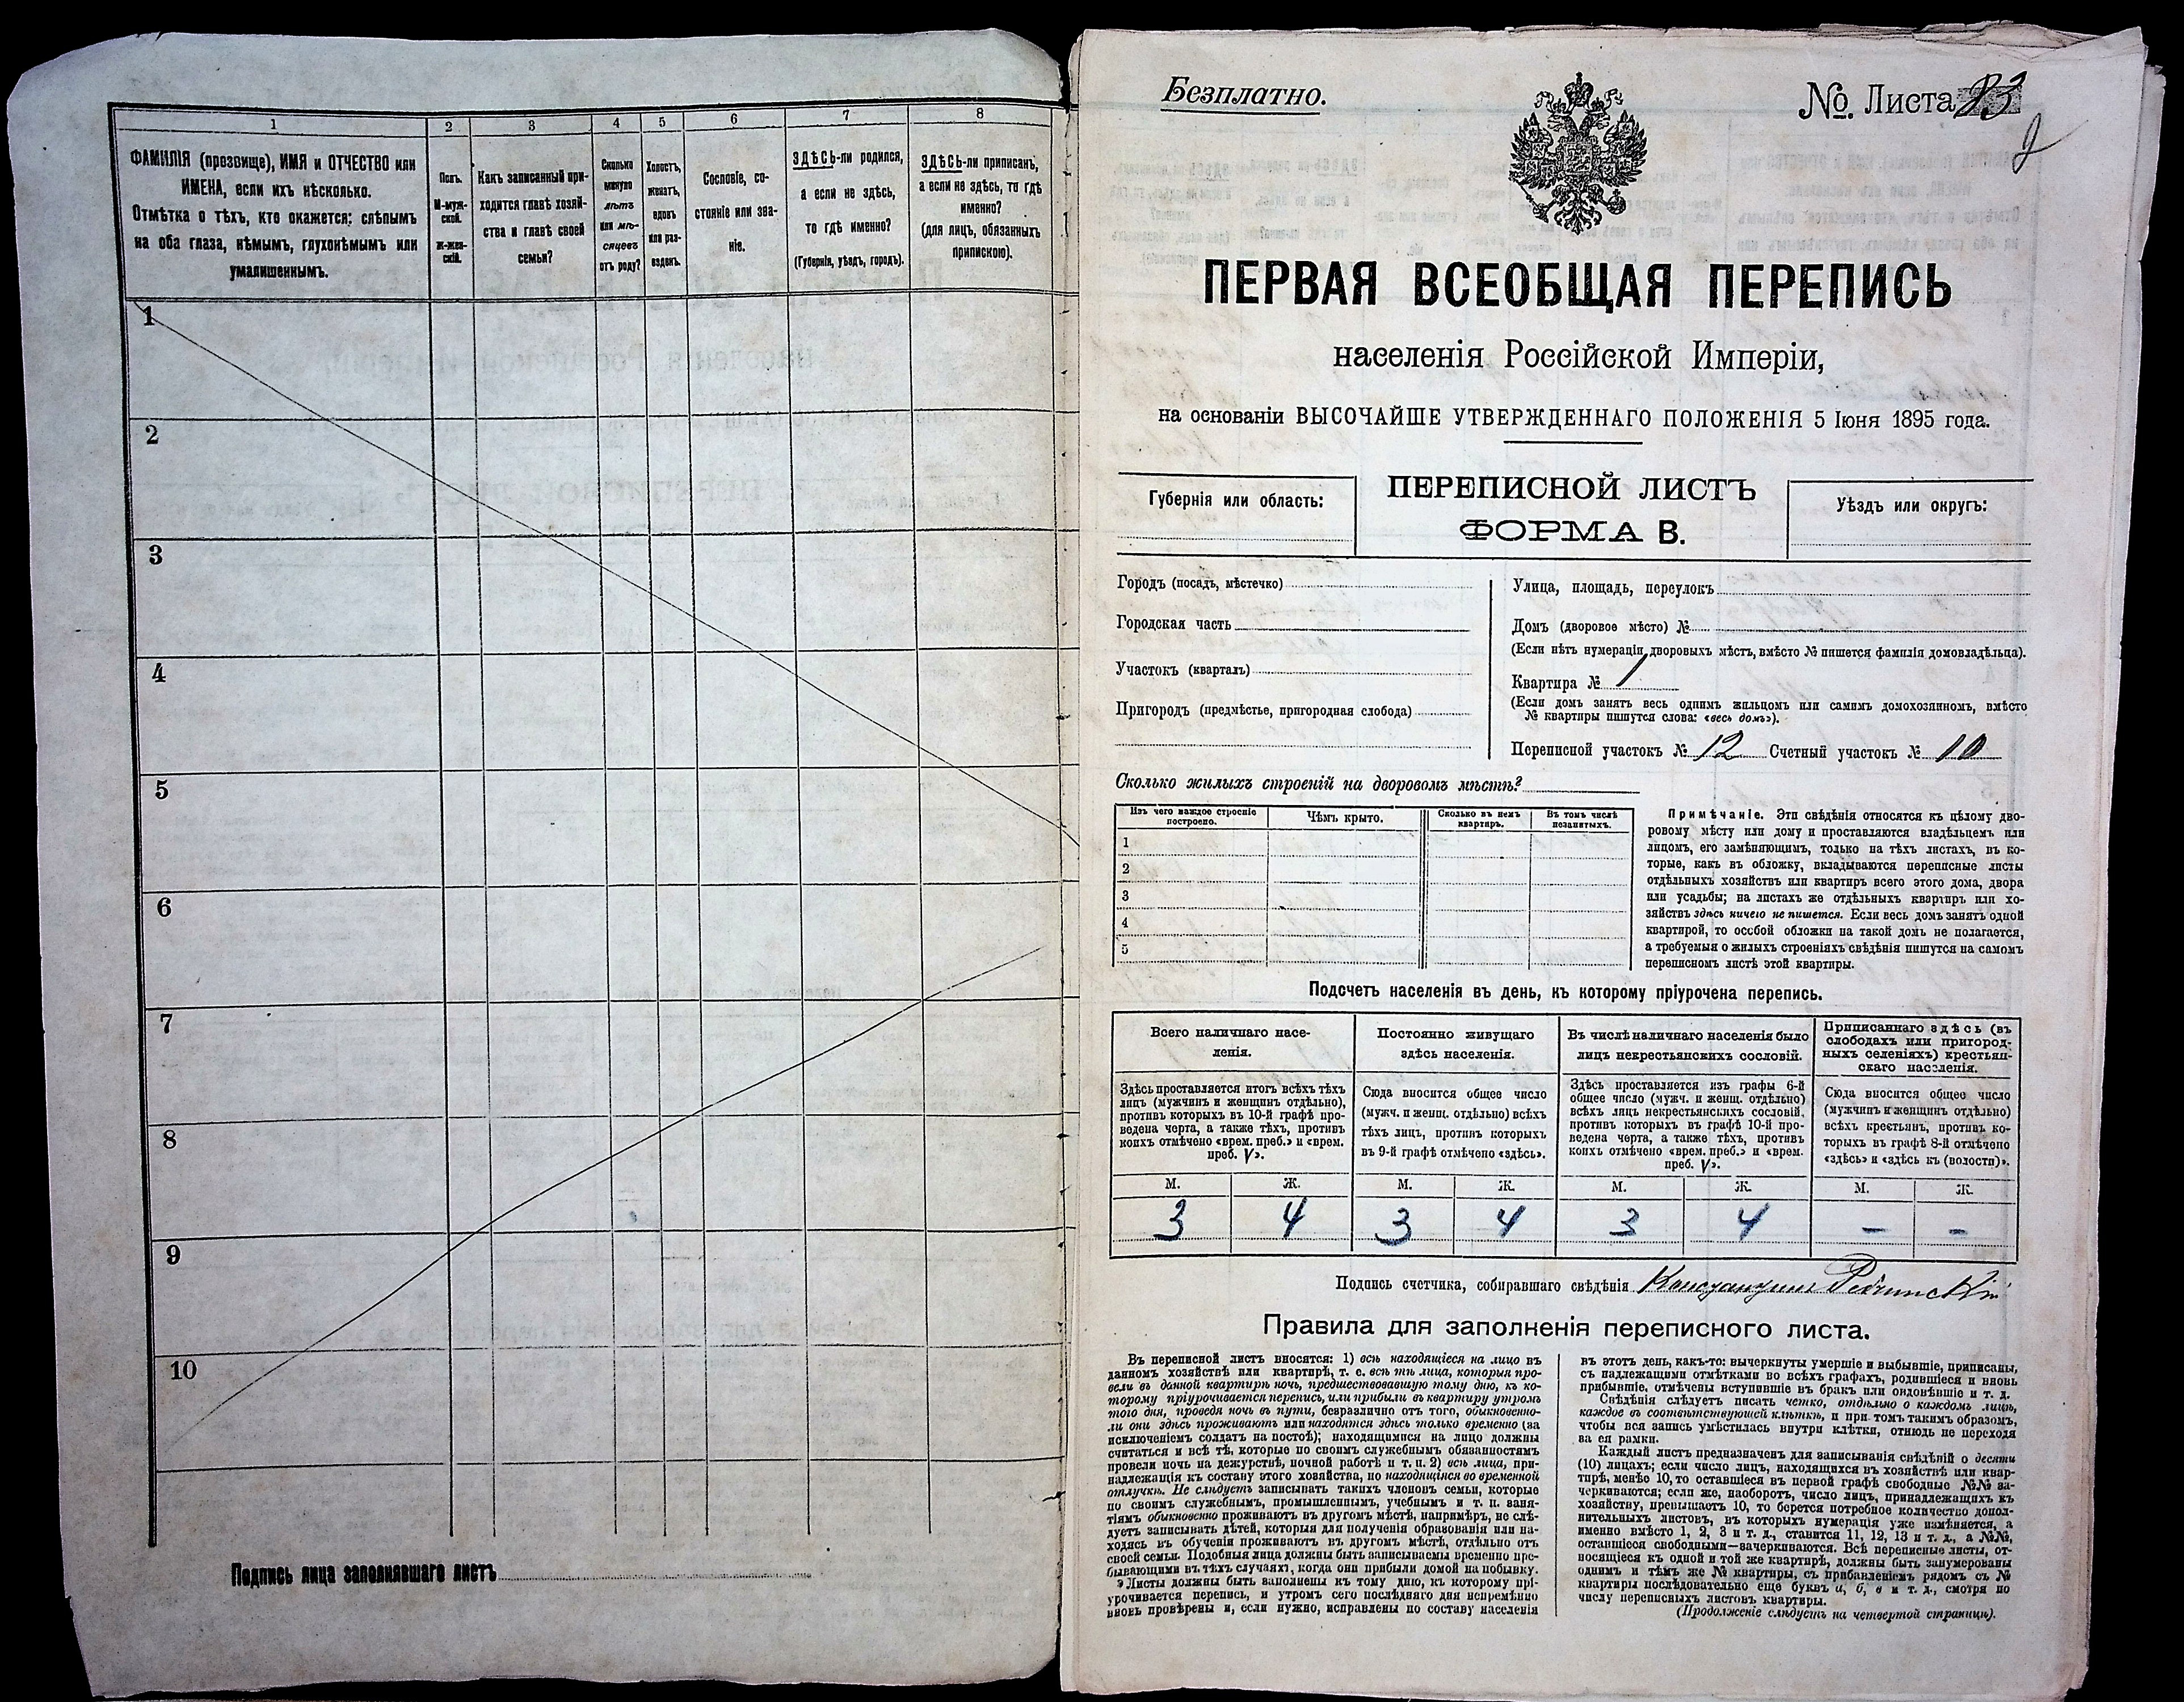 1
2
3
4
5
6
7
8
ФАМИЛІЯ (прозвище), ИМЯ и ОТЧЕСТВО или
ИМЕНА, если ихъ нѣсколько.
Отмѣтка о тѣхъ, кто окажется: слѣпымъ
на оба глаза, нѣмымъ, глухонѣмымъ или
умалишеннымъ.
Полъ.
М-муж-
ской.
Ж-жен-
скій.
Какъ записанный при-
ходится главѣ хозяй-
ства и главѣ своей
семьи?
Сколько
минуло
лѣтъ
или мѣ-
сяцевъ
отъ роду?
Холостъ,
женатъ,
вдовъ
или раз-
веденъ.
Сословіе, со-
стояніе или зва-
ніе.
ЗДѢСЬ-ли родился,
а если не здѣсь,
то гдѣ именно?
(Губернія, уѣздъ, городъ).
ЗДѢСЬ-ли приписанъ,
а если не здѣсь, то гдѣ
именно?
(для лицъ, обязанныхъ
припискою).
1
2
3
4
5
6
7
8
9
10
Подпись лица заполнявшаго листъ
Безплатно.
№. Листа 83
ПЕРВАЯ ВСЕОБЩАЯ ПЕРЕПИСЬ
населенія Россійской Имперіи,
на основаніи ВЫСОЧАЙШЕ УТВЕРЖДЕННАГО ПОЛОЖЕНІЯ 5 Іюня 1895 года.
Губернія или область:
ПЕРЕПИСНОЙ ЛИСТЪ
ФОРМА В.
Уѣздъ или округъ:
Городъ (посадъ, мѣстечко)
Городская часть
Участокъ (кварталъ)
Пригородъ (предмѣстье, пригородная слобода)
Улица, площадь, переулокъ
Домъ (дворовое мѣсто) №
(Если нѣтъ нумераціи дворовыхъ мѣстъ, вмѣсто № пишется фамилія домовладѣльца).
Квартира № 1
(Если домъ занятъ весь однимъ жильцомъ или самимъ домохозяиномъ, вмѣсто
№ квартиры пишутся слова: «весь домъ»).
Переписной участокъ № 12 Счетный участокъ № 10
Сколько жилыхъ строеній на дворовомъ мѣстѣ?
Изъ чего каждое строеніе
построено.
Чѣмъ крыто.
Сколько въ немъ
квартиръ.
Въ томъ числѣ
незанятыхъ.
1
2
3
4
5
Примѣчаніе. Эти свѣдѣнія относятся къ цѣлому дво-
ровому мѣсту или дому и проставляются владѣльцемъ или
лицомъ, его замѣняющимъ, только на тѣхъ листахъ, въ ко-
торые, какъ въ обложку, вкладываются переписные листы
отдѣльныхъ хозяйствъ или квартиръ всего этого дома, двора
или усадьбы; на листахъ же отдѣльныхъ квартиръ или хо-
зяйствъ здѣсь ничего не пишется. Если весь домъ занятъ одной
квартирой, то особой обложки на такой домъ не полагается,
а требуемыя о жилыхъ строеніяхъ свѣдѣнія пишутся на самомъ
переписномъ листѣ этой квартиры.
Подсчетъ населенія въ день, къ которому пріурочена перепись.
Всего наличнаго насе-
ленія.
Постоянно живущаго
здѣсь населенія.
Въ числѣ наличнаго населенія было
лицъ некрестьянскихъ сословій.
Приписаннаго здѣсь (въ
слободахъ или пригород-
ныхъ селеніяхъ) крестьян-
скаго населенія.
Здѣсь проставляется итогъ всѣхъ тѣхъ
лицъ (мужчинъ и женщинъ отдѣльно),
противъ которыхъ въ 10-й графѣ про-
ведена черта, а также тѣхъ, противъ
коихъ отмѣчено «врем. преб.» и «врем.
преб. V».
Сюда вносится общее число
(мужч. и женщ. отдѣльно) всѣхъ
тѣхъ лицъ, противъ которыхъ
въ 9-й графѣ отмѣчено «здѣсь».
Здѣсь проставляется изъ графы 6-й
общее число (мужч. и женщ. отдѣльно)
всѣхъ лицъ некрестьянскихъ сословій,
противъ которыхъ въ графѣ 10-й про-
ведена черта, а также тѣхъ, противъ
коихъ отмѣчено «врем. преб.» и «врем.
преб. V».
Сюда вносится общее число
(мужчинъ и женщинъ отдѣльно)
всѣхъ крестьянъ, противъ ко-
торыхъ въ графѣ 8-й отмѣчено
«здѣсь» и «здѣсь къ (волости)».
М. Ж. М. Ж. М. Ж. М. Ж.
3 4 3 4 3 4 - -
Подпись счетчика, собиравшаго свѣдѣнія Константинъ
Правила для заполненія переписного листа.
Въ переписной листъ вносятся: 1) всѣ находящіеся на лицо въ
данномъ хозяйствѣ или квартирѣ, т. е. всѣ тѣ лица, которыя про-
вели въ данной квартирѣ ночь, предшествовавшую тому дню, къ ко-
торому пріурочивается перепись, или прибыли въ квартиру утромъ
того дня, проведя ночь въ пути, безразлично отъ того, обыкновенно-
ли они здѣсь проживаютъ или находятся здѣсь только временно (за
исключеніемъ солдатъ на постоѣ); находящимися на лицо должны
считаться и всѣ тѣ, которые по своимъ служебнымъ обязанностямъ
провели ночь на дежурствѣ, ночной работѣ и т. п. 2) всѣ лица, при-
надлежащія къ составу этого хозяйства, но находящіяся во временной
отлучкѣ. Не слѣдуетъ записывать такихъ членовъ семьи, которые
по своимъ служебнымъ, промышленнымъ, учебнымъ и т. п. заня-
тіямъ обыкновенно проживаютъ въ другомъ мѣстѣ, напримѣръ, не слѣ-
дуетъ записывать дѣтей, которыя для полученія образованія или на-
ходясь въ обученіи проживаютъ въ другомъ мѣстѣ, отдѣльно отъ
своей семьи. Подобныя лица должны быть записываемы временно пре-
бывающими въ тѣхъ случаяхъ, когда они прибыли домой на побывку.
Листы должны быть заполнены къ тому дню, къ которому прі-
урочивается перепись, и утромъ сего послѣдняго дня непремѣнно
вновь провѣрены и, если нужно, исправлены по составу населенія
въ этотъ день, какъ-то: вычеркнуты умершіе и выбывшіе, приписаны,
съ надлежащими отмѣтками во всѣхъ графахъ, родившіеся и вновь
прибывшіе, отмѣчены вступившіе въ бракъ или овдовѣвшіе и т. д.
Свѣдѣнія слѣдуетъ писать четко, отдѣльно о каждомъ лицѣ,
каждое въ соотвѣтствующей клѣткѣ, и при томъ такимъ образомъ,
чтобы вся запись умѣстилась внутри клѣтки, отнюдь не переходя
за ея рамки.
Каждый листъ предназначенъ для записыванія свѣдѣній о десяти
(10) лицахъ; если число лицъ, находящихся въ хозяйствѣ или квар-
тирѣ, менѣе 10, то оставшіеся въ первой графѣ свободные №№ за-
черкиваются; если же, наоборотъ, число лицъ, принадлежащихъ къ
хозяйству, превышаетъ 10, то берется потребное количество допол-
нительныхъ листовъ, въ которыхъ нумерація уже измѣняется, а
именно вмѣсто 1, 2, 3 и т. д., ставится 11, 12, 13 и т. д., а №№,
оставшіеся свободными—зачеркиваются. Всѣ переписные листы, от-
носящіеся къ одной и той же квартирѣ, должны быть занумерованы
однимъ и тѣмъ же № квартиры, съ прибавленіемъ рядомъ съ №
квартиры послѣдовательно еще буквъ а, б, в и т. д., смотря по
числу переписныхъ листовъ квартиры.
(Продолженіе слѣдуетъ на четвертой страницѣ).